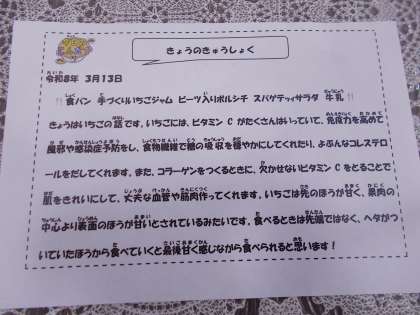 きょうのきゅうしょく
令和8年 3月13日
!!食パン 手づくりいちごジャム ビーツ入りボルシチ スパゲティサラダ 牛乳!!
きょうはいちごの話です。いちごには、ビタミン C がたくさんはいっていて、免疫力を高めて
風邪や感染症予防をし、食物繊維で糖の吸収を穏やかにしてくれたり、よぶんなコレステロ
ールをだしてくれます。また、コラーゲンをつくるときに、欠かせないビタミン C をとることで
肌をきれいにして、丈夫な血管や筋肉作ってくれます。いちごは先のほうが甘く、果肉の
中心より表面のほうが甘いとされているみたいです。食べるときは先端ではなく、ヘタがつ
いていたほうから食べていくと最後甘く感じながら食べられると思います!